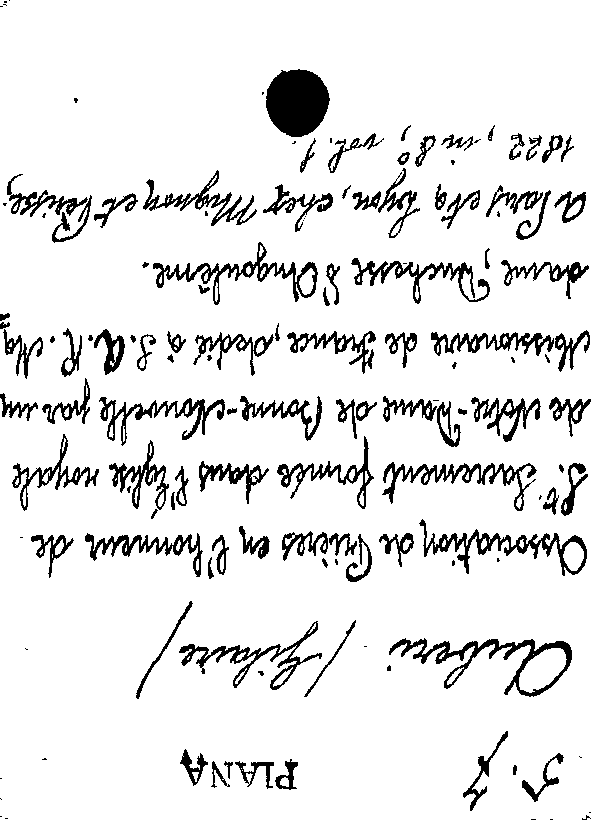 5. J
PIANA
Auberi / Hilaire /
Association de Prières en l'honneur de
St. Sacrement formée dans l'Église royale
de Notre-Dame de Bonne-Nouvelle par un
Missionaire de France, dedié à S. A. R. Ma=
dame, Duchesse d'Angoulême.
A Paris et a Lyon, chez Mignon et Périsse,
1822, in 8º, vol. 1.